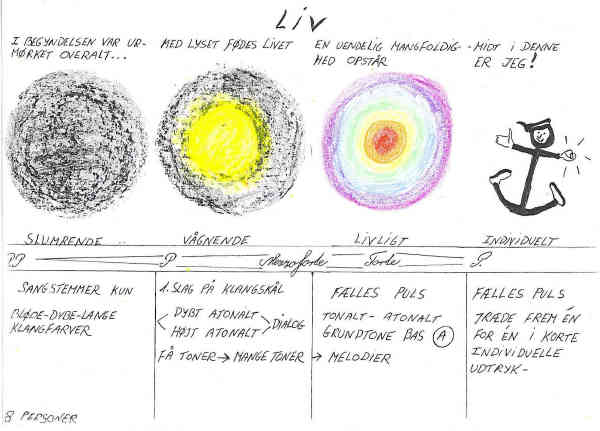 LIV
I BEGYNDELSEN VAR UR-
MØRKET OVERALT...
MED LYSET FØDES LIVET
EN UENDELIG MANGFOLDIG-
HED OPSTÅR
-MIDT I DENNE
ER JEG!
SLUMRENDE..
VÅGNENDE
LIVLIGT
INDIVIDUELT
PP
P
Mezzoforte
Forte
P.
SANGSTEMMER KUN
BLØDE-DYBE-LANGE
KLANGFARVER
1. SLAG PÅ KLANGSKÅL
DYBT ATONALT
HØJT ATONALT
DIALOG
FÅ TONER → MANGE TONER
FÆLLES PULS
TONALT- ATONALT
GRUNDTONE BAS A
→ MELODIER
FÆLLES PULS
TRÆDE FREM ÉN
FOR ÉN I KORTE
INDIVIDUELLE
UDTRYK-
8 PERSONER